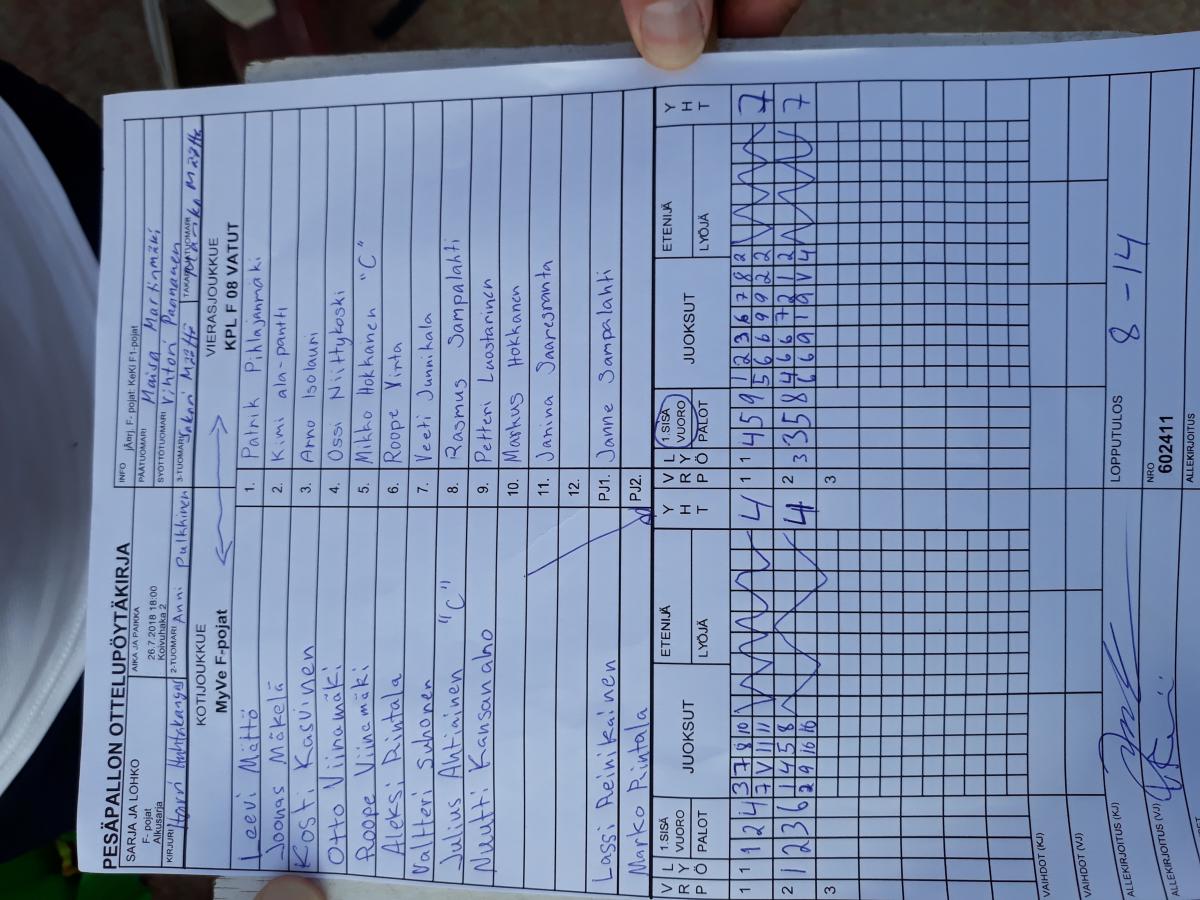 PESÄPALLON OTTELUPÖYTÄKIRJA
SARJA JA LOHKO
F- pojat
Alkusarja
AIKA JA PAIKKA
26.7.2018 18:00
Koivuhaka 2
INFO jÄrrj. F- pojat: KeKi F1-pojat
PÄÄTUOMARI Maisa Martinmäki
SYÖTTÖTUOMARI Vihtori Pannanen
KIRJURI Harri Huhtakangas
2-TUOMARI Anni Pulkkinen
3-TUOMARI Sakari Määttä
TAKARAJATUOMARI Määttä
KOTIJOUKKUE
MyVe F-pojat
VIERASJOUKKUE
KPL F 08 VATUT
Leevi Mättö 1. Patrik Pihlajanmäki
Joonas Mäkelä 2. Kimi ala-pantti
Kosti Kasvinen 3. Arno Isolauri
Otto Viinamäki 4. Ossi Niittykoski
Roope Viinamäki 5. Mikko Hokkanen "C"
Aleksi Rintala 6. Roope Vinta
Valtteri Suhonen 7. Veeti Junnikala
Julius Ahtiainen "C" 8. Rasmus Sampalahti
Nuuti Kansanaho 9. Petteri Luostarinen
10. Markus Hokkanen
11. Janina Jaaresranta
12.
Lassi Reinikainen PJ1. Janne Sampalahti
Marko Rintala PJ2.
V R P L Y Ö 1.SISÄ VUORO PALOT JUOKSUT ETENIJÄ LYÖJÄ Y H T
V R P L Y Ö 1.SISÄ VUORO PALOT JUOKSUT ETENIJÄ LYÖJÄ Y H T
1 1 1 2 4 3 7 8 10 4 1 1 4 5 9 1 2 3 6 7 8 2 7
7 V 11 11 5 6 6 9 9 2 2
2 1 2 3 6 1 4 5 8 4 2 3 3 5 8 4 6 6 7 2 1 2 7
2 9 16 16 6 6 9 1 9 V 4
3 3
VAIHDOT (KJ)
VAIHDOT (VJ)
ALLEKIRJOITUS (KJ)
LOPPUTULOS 8 - 14
ALLEKIRJOITUS (VJ)
NRO
602411
ALLEKIRJOITUS